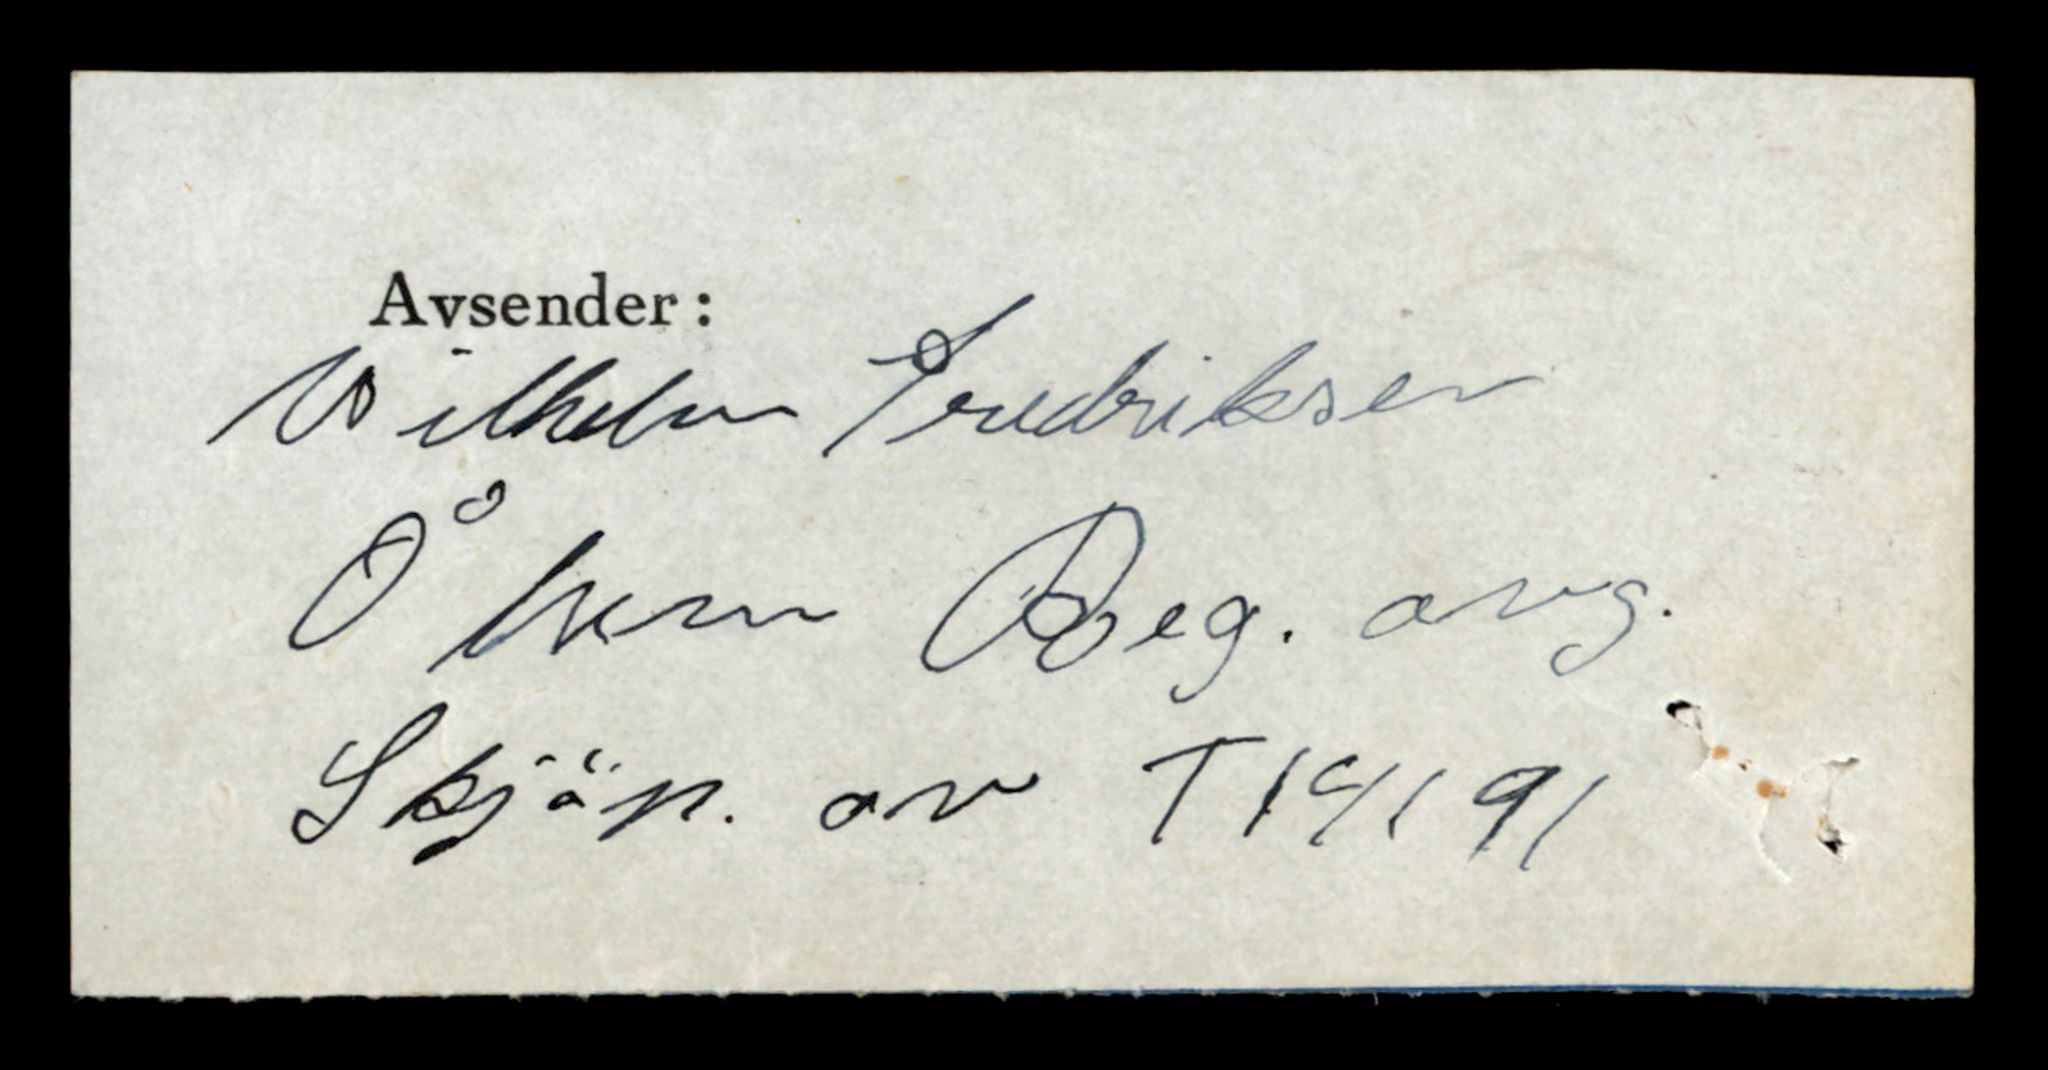 Avsender:
Wilhelm Fredriksen
Åhem Reg. avg.
Skjöp. av T 14191